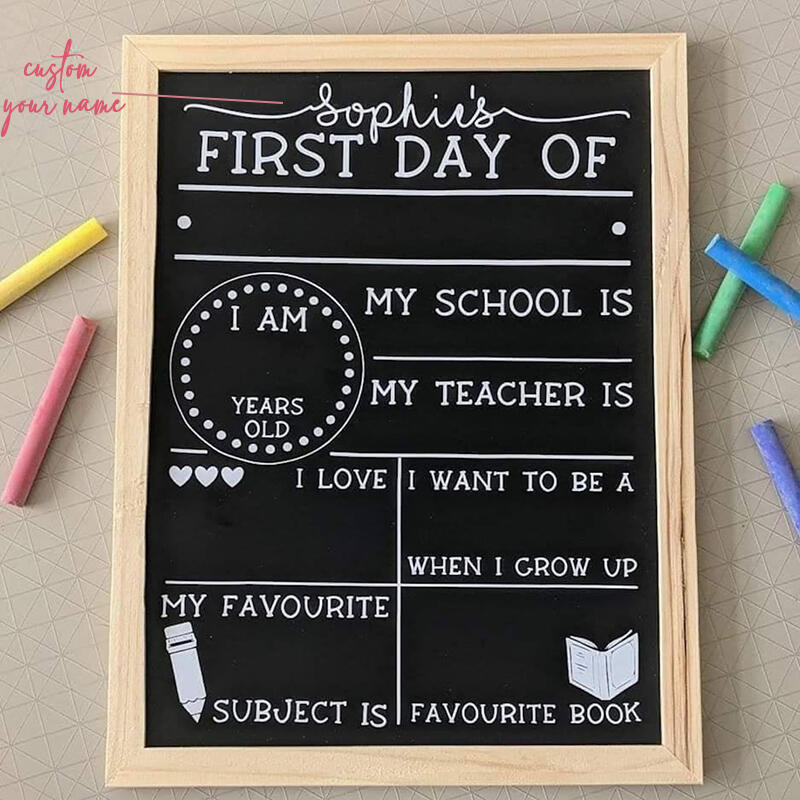 custom
your name
Sophie's
FIRST DAY OF
I AM
YEARS
OLD
MY SCHOOL IS
MY TEACHER IS
I LOVE
I WANT TO BE A
WHEN I GROW UP
MY FAVOURITE
SUBJECT IS
FAVOURITE BOOK